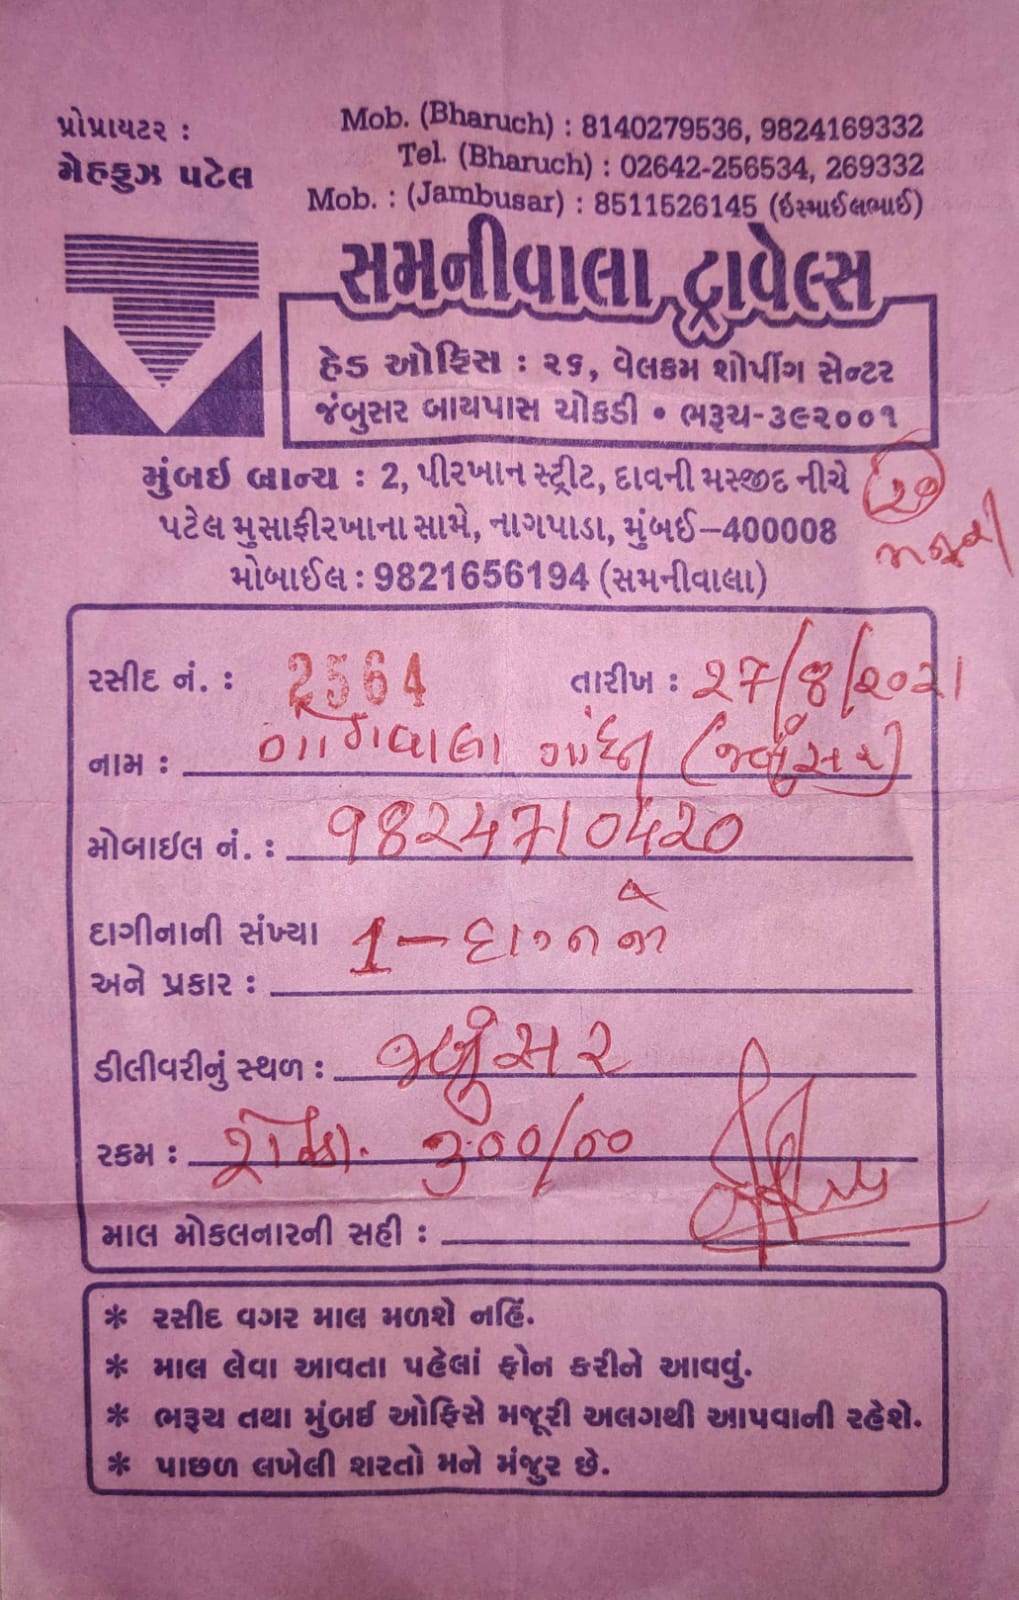 પ્રોપ્રાયટર :
મેહફુઝ પટેલ
Mob. (Bharuch) : 8140279536, 9824169332
Tel. (Bharuch) : 02642-256534, 269332
Mob. : (Jambusar) : 8511526145 (ઈસ્માઈલભાઈ)
સમનીવાલા ટ્રાવેલ્સ
હેડ ઓફિસ : ૨૬, વેલકમ શોપીંગ સેન્ટર
જંબુસર બાયપાસ ચોકડી • ભરૂચ-૩૯૨૦૦૧
મુંબઈ બ્રાન્ચ : 2, પીરખાન સ્ટ્રીટ, દાવની મસ્જીદ નીચે
પટેલ મુસાફીરખાના સામે, નાગપાડા, મુંબઈ–400008
મોબાઈલ : 9821656194 (સમનીવાલા)
રસીદ નં. : 2564 તારીખ : ૨7/8/૨૦૨1
નામ : (જંબુસર)
મોબાઈલ નં. : ૧824710420
દાગીનાની સંખ્યા
અને પ્રકાર : 1 –
ડીલીવરીનું સ્થળ : જંબુસર
રકમ : રોકડા. ૩૦૦/૦૦
માલ મોકલનારની સહી :
* રસીદ વગર માલ મળશે નહિં.
* માલ લેવા આવતા પહેલાં ફોન કરીને આવવું.
* ભરૂચ તથા મુંબઈ ઓફિસે મજૂરી અલગથી આપવાની રહેશે.
* પાછળ લખેલી શરતો મને મંજુર છે.